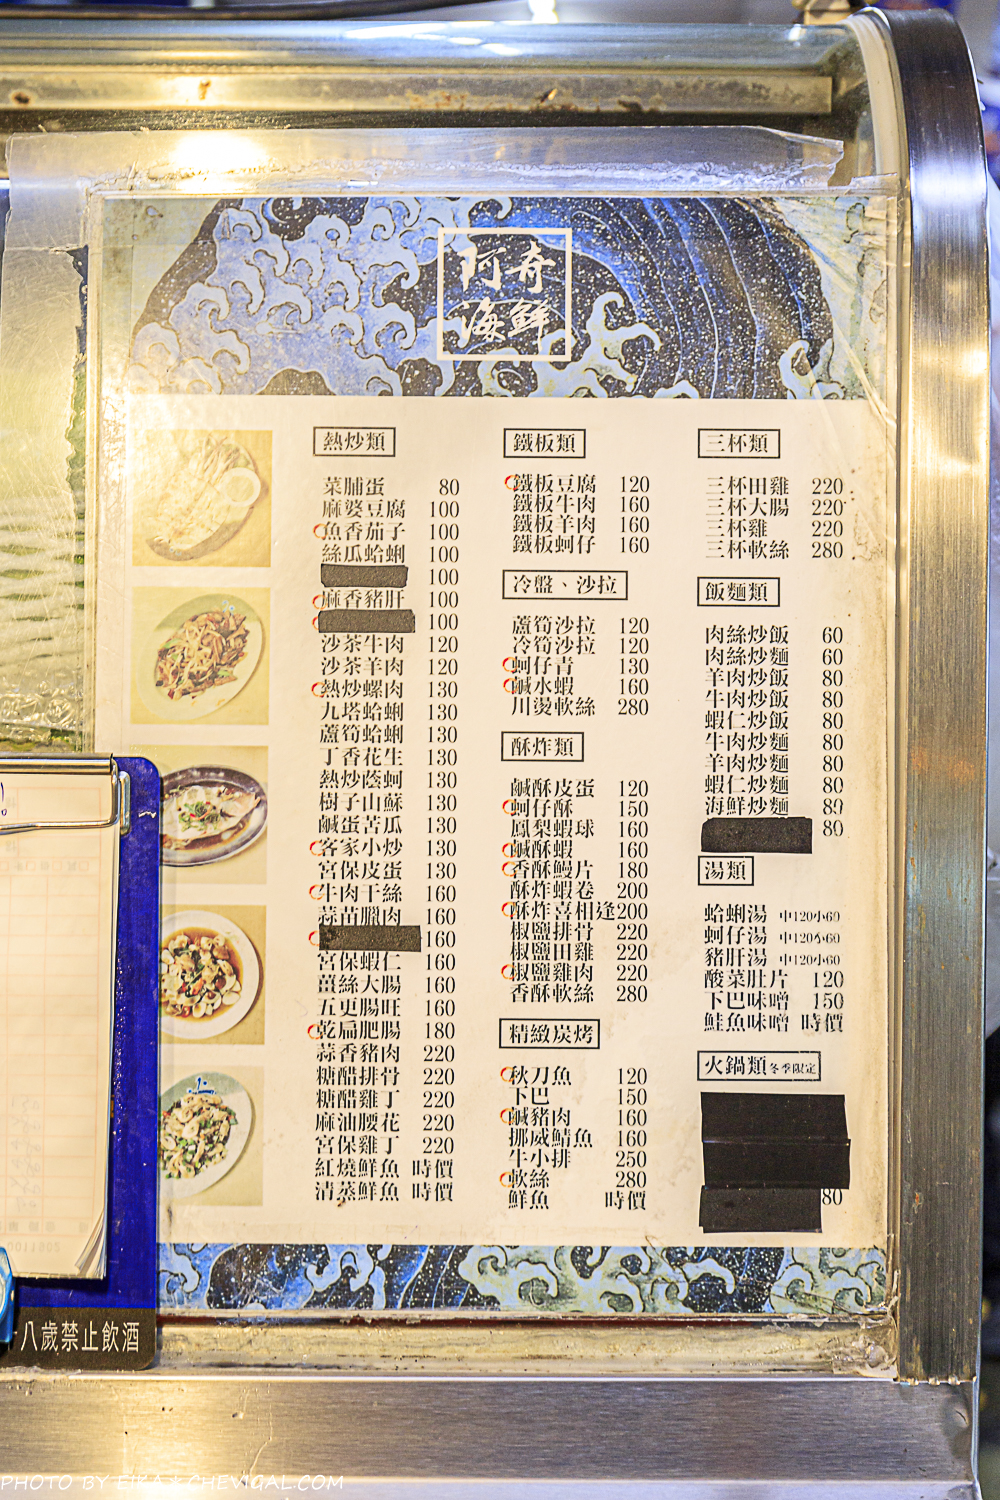 阿奇
海鮮
熱炒類
菜脯蛋 80
麻婆豆腐 100
魚香茄子 100
絲瓜蛤蜊 100
100
麻香豬肝 100
100
沙茶牛肉 120
沙茶羊肉 120
熱炒螺肉 130
九塔蛤蜊 130
蘆筍蛤蜊 130
丁香花生 130
熱炒蔭蚵 130
樹子山蘇 130
鹹蛋苦瓜 130
客家小炒 130
宮保皮蛋 130
牛肉干絲 160
蒜苗臘肉 160
160
宮保蝦仁 160
薑絲大腸 160
五更腸旺 160
乾扁肥腸 180
蒜香豬肉 220
糖醋排骨 220
糖醋雞丁 220
麻油腰花 220
宮保雞丁 220
紅燒鮮魚 時價
清蒸鮮魚 時價
鐵板類
鐵板豆腐 120
鐵板牛肉 160
鐵板羊肉 160
鐵板蚵仔 160
冷盤、沙拉
蘆筍沙拉 120
冷筍沙拉 120
蚵仔青 130
鹹水蝦 160
川燙軟絲 280
酥炸類
鹹酥皮蛋 120
蚵仔酥 150
鳳梨蝦球 160
鹹酥蝦 160
香酥鰻片 180
酥炸蝦卷 200
酥炸喜相逢200
椒鹽排骨 220
椒鹽田雞 220
椒鹽雞肉 220
香酥軟絲 280
精緻炭烤
秋刀魚 120
下巴 150
鹹豬肉 160
挪威鯖魚 160
牛小排 250
軟絲 280
鮮魚 時價
三杯類
三杯田雞 220
三杯大腸 220
三杯雞 220
三杯軟絲 280
飯麵類
肉絲炒飯 60
肉絲炒麵 60
羊肉炒飯 80
牛肉炒飯 80
蝦仁炒飯 80
牛肉炒麵 80
羊肉炒麵 80
蝦仁炒麵 80
海鮮炒麵 80
80
湯類
蛤蜊湯 中120小60
蚵仔湯 中120小60
豬肝湯 中120小60
酸菜肚片 120
下巴味噌 150
鮭魚味噌 時價
火鍋類冬季限定
80
八歲禁止飲酒
PHOTO BY EIKA＊CHEVIGAL.COM